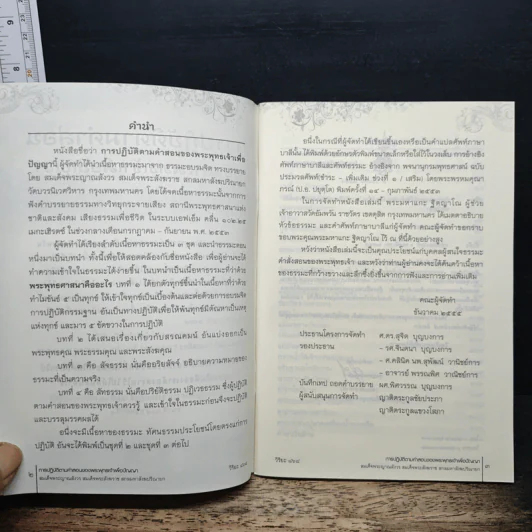 คำนำ
หนังสือชื่อว่า การปฏิบัติตามคำสอนของพระพุทธเจ้าเพื่อ
ปัญญานี้ ผู้จัดทำได้นำเนื้อหาธรรมะมาจาก ธรรมะอบรมจิต ทรงบรรยาย
โดย สมเด็จพระญาณสังวร สมเด็จพระสังฆราช สกลมหาสังฆปริณายก
วัดบวรนิเวศวิหาร กรุงเทพมหานคร โดยได้จดเนื้อหาธรรมะนั้นจากการ
ฟังคำบรรยายธรรมทางวิทยุกระจายเสียง สถานีพระพุทธศาสนาแห่ง
ชาติและสังคม เสียงธรรมเพื่อชีวิต ในระบบเอฟเอ็ม คลื่น
เมกะเฮิรตซ์ ในช่วงกลางเดือนกรกฎาคม - กันยายน พ.ศ. ๒๕๕๓
ผู้จัดทำได้เรียงลำดับเนื้อหาธรรมะเป็น ๓ ชุด และนำธรรมะตอน
หนึ่งมาเป็นบทนำ ทั้งนี้เพื่อให้สอดคล้องกับชื่อหนังสือ เพื่อผู้อ่านจะได้
ทำความเข้าใจในธรรมะได้ง่ายขึ้น ในบทนำเป็นเนื้อหาธรรมะที่ว่าด้วย
พระพุทธศาสนาคืออะไร บทที่ ๑ ได้ยกตัวทุกข์ขึ้นนำในเนื้อหาที่ว่าด้วย
ทำไมขันธ์ ๕ เป็นทุกข์ ให้เข้าใจทุกข์เป็นเบื้องต้นและต่อด้วยการอบรมจิต
การปฏิบัติกรรมฐาน อันเป็นทางปฏิบัติเพื่อให้พ้นทุกข์มีตัณหาเป็นเหตุ
แห่งทุกข์ และมาร ๕ ขัดขวางในการปฏิบัติ
บทที่ ๒ ได้เสนอเรื่องเกี่ยวกับสรณคมน์ อันแบ่งออกเป็น
พระพุทธคุณ พระธรรมคุณ และพระสังฆคุณ
บทที่ ๓ คือ สัจธรรม นั่นคืออริยสัจจ์ อธิบายความหมายของ
ธรรมะที่เป็นความจริง
บทที่ ๔ คือ สัทธรรม นั่นคือปริยัติธรรม ปฏิเวธธรรม ซึ่งผู้ปฏิบัติ
ตามคำสอนของพระพุทธเจ้าควรรู้ และเข้าใจในธรรมะก่อนจึงจะปฏิบัติ
และบรรลุมรรคผลได้
อนึ่งจะมีเนื้อหาของธรรมะ ทัศนธรรมประโยชน์โดยตรงแก่การ
ปฏิบัติ อันจะได้พิมพ์เป็นชุดที่ ๒ และชุดที่ ๓ ต่อไป
๒
การปฏิบัติตามคำสอนของพระพุทธเจ้าเพื่อปัญญา
สมเด็จพระญาณสังวร สมเด็จพระสังฆราช สกลมหาสังฆปริณายก
อนึ่งในกรณีที่ผู้จัดทำได้เขียนขึ้นเองหรือเป็นคำแปลศัพท์ภาษา
บาลีนั้น ได้พิมพ์ด้วยอักษรตัวพิมพ์ขนาดเล็กหรือใส่ไว้ในวงเล็บ การอ้างอิง
ศัพท์ภาษาบาลีและศัพท์ธรรมะ อ้างอิงจาก พจนานุกรมพุทธศาสน์ ฉบับ
ประมวลศัพท์(ชำระ - เพิ่มเติม ช่วงที่ ๑ / เสริม) โดยพระพรหมคุณา
ภรณ์ (ป.อ. ปยุตฺโต) พิมพ์ครั้งที่ ๑๔ - กุมภาพันธ์ ๒๕๕๓
ในการจัดทำหนังสือเล่มนี้ พระมหาแกะ ฐิตญาโณ ผู้ช่วย
เจ้าอาวาสวัดอัมพวัน ราชวัตร เขตดุสิต กรุงเทพมหานคร ได้เมตตาอธิบาย
หัวข้อธรรมะ และคำศัพท์ภาษาบาลีแก่ผู้จัดทำ คณะผู้จัดทำขอกราบ
ขอบพระคุณพระมหาแกะ ฐิตญาโณ ไว้ ณ ที่นี้ด้วยอย่างสูง
หวังว่าหนังสือเล่มนี้จะเป็นคุณประโยชน์แก่บุคคลผู้สนใจธรรมะ
คำสั่งสอนของพระพุทธเจ้า และหวังว่าท่านผู้อ่านคงจะได้ค้นคว้าเนื้อหา
ของธรรมะที่กว้างขวางและลึกซึ้งยิ่งขึ้นจากการฟังและการอ่านเพิ่มเติม
คณะผู้จัดทำ
ธันวาคม ๒๕๕๔
ประธานโครงการจัดทำ ศ.ดร.สุจิต บุญบงการ
รองประธาน - รศ.จินตนา บุญบงการ
- ศ.คลินิก นพ.สุพัฒน์ วาณิชย์การ
- อาจารย์ พรรณทิศ วาณิชย์การ
บันทึกเทป ถอดคำบรรยาย ผศ.พิศวรรณ บุญบงการ
ผู้สนับสนุนการจัดทำ ญาติตระกูลชัยประภา
ญาติตระกูลแขวงโสภา
การปฏิบัติตามคำสอนของพระพุทธเจ้าเพื่อปัญญา
สมเด็จพระญาณสังวร สมเด็จพระสังฆราช สกลมหาสังฆปริณายก
๓